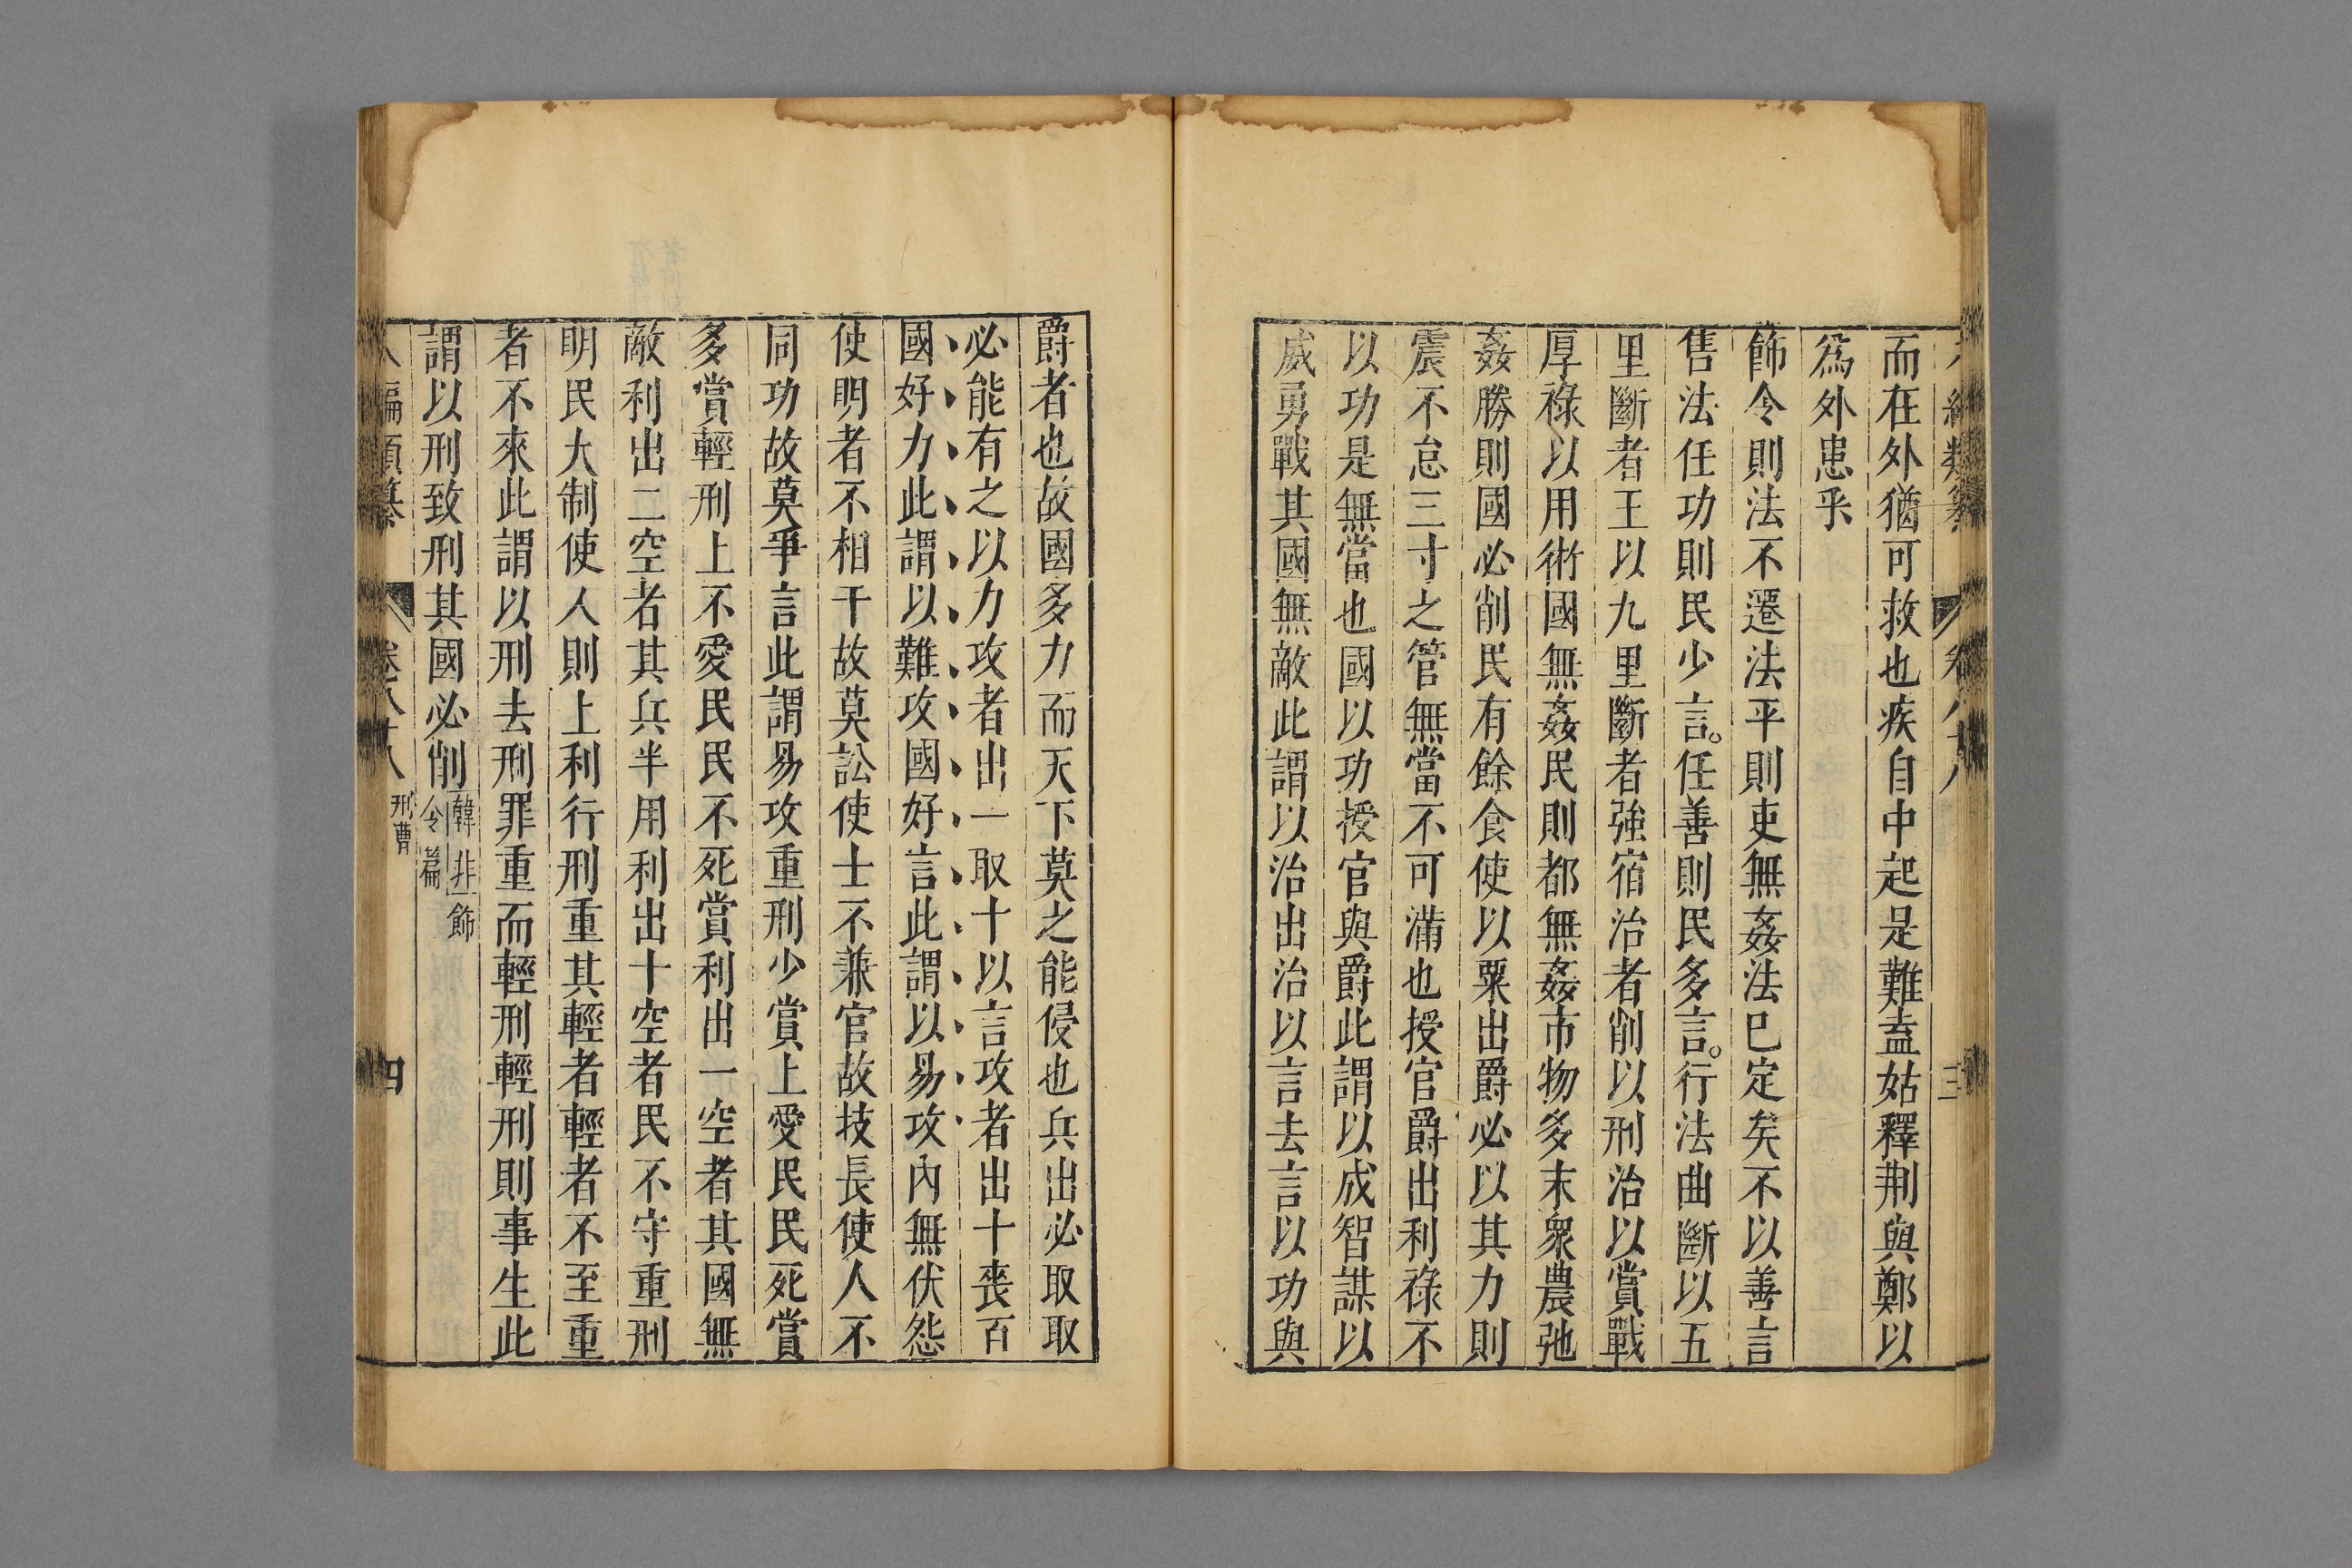 而在外猶可救也疾自中起是難盍姑釋荆與鄭以
爲外患乎
飾令則法不遷法平則吏無姦法已定矣不以善言
售法任功則民少言。任善則民多言。行法曲斷以五
里斷者王以九里斷者強宿治者削以刑治以賞戰
厚祿以用術國無姦民則都無姦市物多末衆農弛
姦勝則國必削民有餘食使以粟出爵必以其力則
震不怠三寸之管無當不可滿也授官爵出利祿不
以功是無當也國以功授官與爵此謂以成智謀以
威勇戰其國無敵此謂以治出治以言去言以功與
爵者也故國多力而天下莫之能侵也兵出必取取
必能有之以力攻者出一取十以言攻者出十喪百
國好力此謂以難攻國好言此謂以易攻內無伏怨
使明者不相干故莫訟使士不兼官故技長使人不
同功故莫爭言此謂易攻重刑少賞上愛民民死賞
多賞輕刑上不愛民民不死賞利出一空者其國無
敵利出二空者其兵半用利出十空者民不守重刑
明民大制使人則上利行刑重其輕者輕者不至重
者不來此謂以刑去刑罪重而輕刑輕刑則事生此
謂以刑致刑其國必削韓非飾
令篇
編類纂 卷八十八 刑曹 四